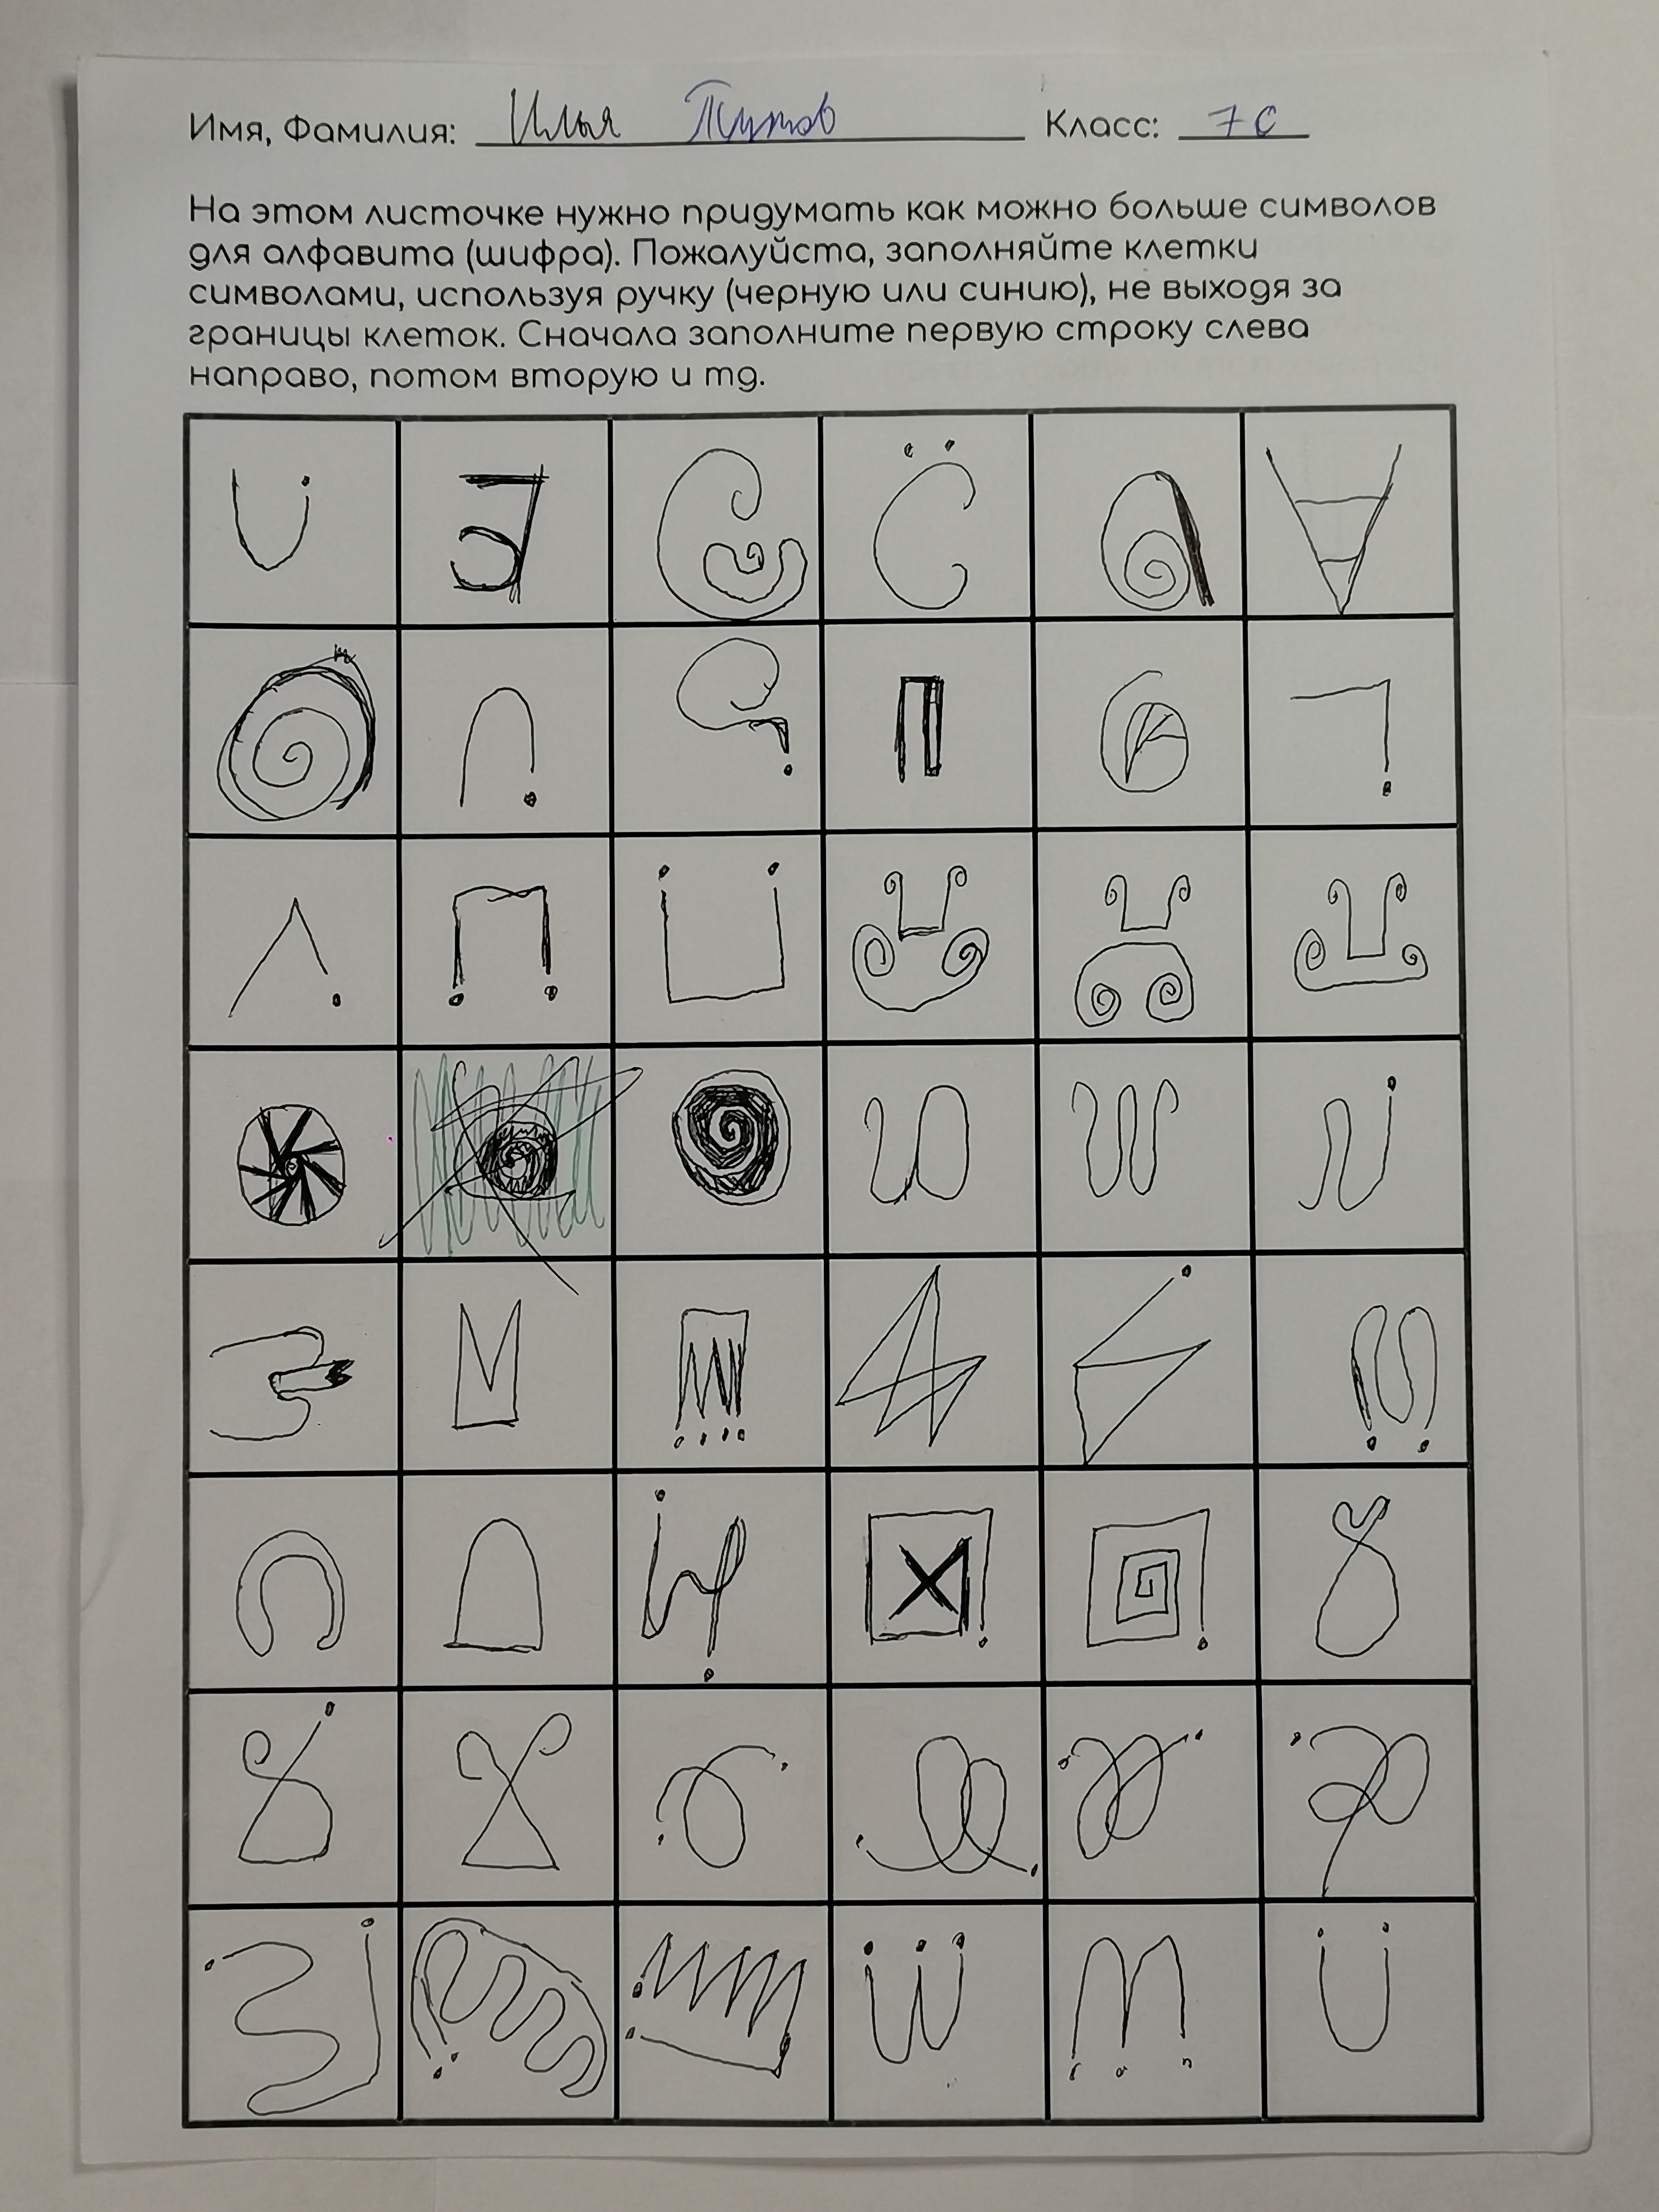 Имя, Фамилия: Илья Класс: 7 С
На этом листочке нужно придумать как можно больше символов
для алфавита (шифра). Пожалуйста, заполняйте клетки
символами, используя ручку (черную или синию), не выходя за
границы клеток. Сначала заполните первую строку слева
направо, потом вторую и тд.